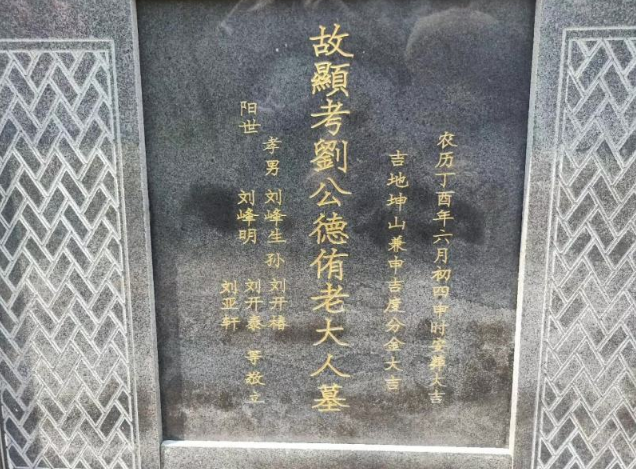 农历丁酉年六月初四申时安葬大吉
吉地坤山兼申吉度分金大吉
故顯考劉公德侑老大人墓
阳世
孝男 刘峰生 孙 刘开禧
刘峰明 刘开泰 等敬立
刘亚轩